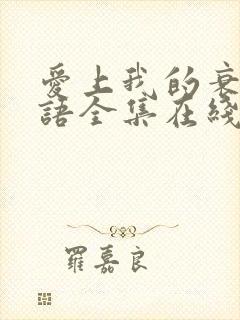 愛上我的衰
語全集在綫
羅嘉良